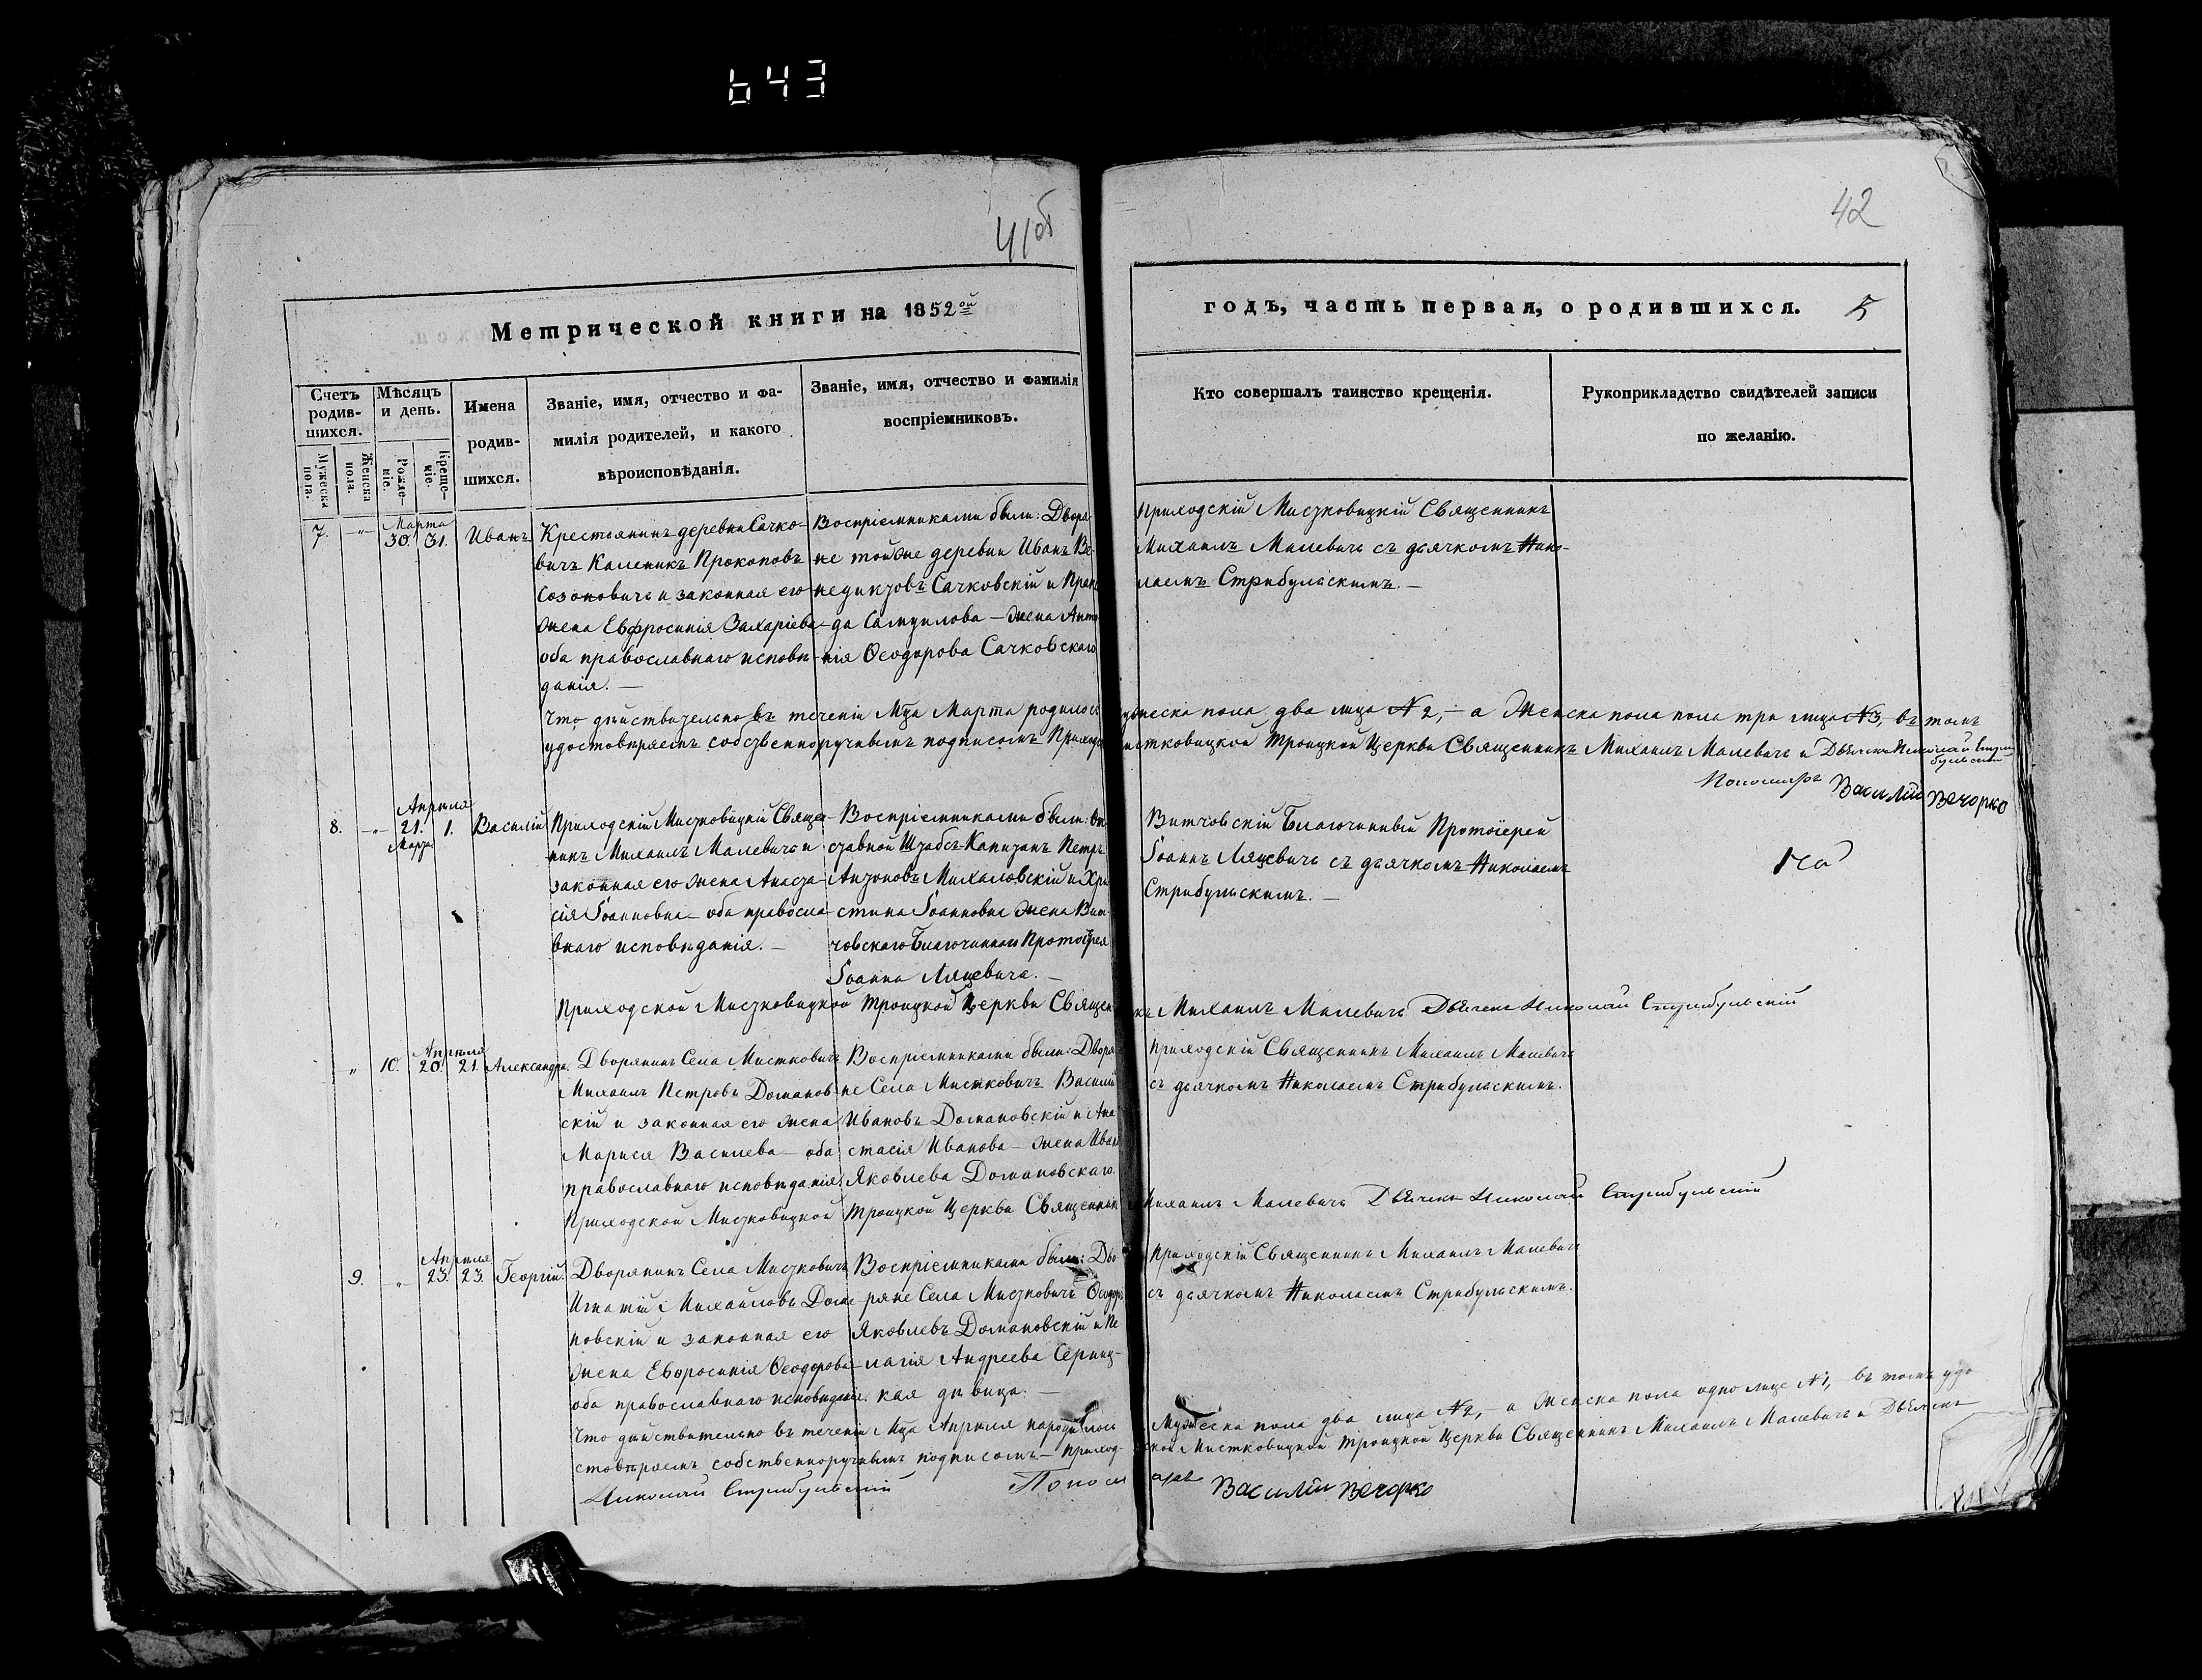 643
41об
42
Метрической книги на 1852ой
годъ, часть первая, о родившихся.
5
Счетъ родив-шихся.
Мужеска пола.
Женска пола.
Мѣсяцъ и день.
Рожде-ніе.
Креще-ніе.
Имена
родив-
шихся.
Званіе, имя, отчество и фа-
милія родителей, и какого
вѣроисповѣданія.
Званіе, имя, отчество и фамилія
воспріемниковъ.
Кто совершалъ таинство крещенія.
Рукоприкладство свидѣтелей записи
по желанію.
7.
Марта
30. 31.
Иванъ
Крестьянинъ деревни Сачко-
вичъ Каленикъ Прокоповъ
Созоновичъ и законная его
жена Евфросинія Захаріева
оба православнаго исповѣ-
данія.—
Воспріемниками были: Дворя-
не той же деревни Иванъ Ве-
недиктовъ Сачковскій и Праск
да Самуилова — жена Анто
нія Ѳеодорова Сачковскаго
Приходскій Мистковицкій Священникъ
Михаилъ Малевичъ съ дьячкомъ Нико-
лаемъ Стрибульскимъ.—
Что дѣйствительно въ теченіи Мца Марта родилось
мужеска пола два лица № 2,— а Женска пола пола три лица № 3, въ томъ
удостовѣряемъ собственноручнымъ подписомъ Приход
истковицкой Троицкой Церкви Священникъ Михаилъ Малевичъ и Дьячекъ Николай Стри
бульскій
Пономарь Василій Вечорко
8.
Апрѣля
21. 1.
Марта
Василій
Приходскій Мистковицкій Священ-
никъ Михаилъ Малевичъ и
законная его жена Анаста-
сія Іоанновна — оба правосла-
внаго исповѣданія.—
Воспріемниками были: От
ставной Штабсъ-Капитанъ Петръ
Антоновъ Михаловскій и Хри
стина Іоанновна жена Вит-
човскаго Благочиннаго Протоіерея
Іоанна Ляцевича.—
Витчовскій Благочинный Протоіерей
Іоаннъ Ляцевичъ съ дьячкомъ Николаемъ
Стрибульскимъ.—
Приходской Мистковицкой Троицкой Церкви Священ
къ Михаилъ Малевичъ Дьячекъ Николай Стрибульскій
10.
Апрѣля
20. 21.
Александра.
Дворянинъ Села Мистковичъ
Михаилъ Петровъ Доманов-
скій и законная его жена
Марися Василева — оба
православнаго исповѣданія
Воспріемниками были: Дворя
не Села Мистковичъ Василій
Ивановъ Домановскій и Ана
стасія Иванова — жена Иван
Яковлева Домановскаго.
Приходскій Священникъ Михаилъ Малевичъ
съ дьячкомъ Николаемъ Стрибульскимъ.
Приходской Мистковицкой Троицкой Церкви Священник
Михаилъ Малевичъ Дьячекъ Николай Стрибульскій
9.
Апрѣля
23. 23.
Георгій
Дворянинъ Села Мистковичъ
Игнатій Михаиловъ Дома
новскій и законная его
жена Евфросинія Ѳеодорова
оба православнаго исповѣданія.
Воспріемниками были: Дво
ряне Села Мистковичъ Ѳеодоръ
Яковлевъ Домановскій и Пе
лагія Андреева Серниц-
кая дѣвица.—
Приходскій Священникъ Михаилъ Малевичъ
съ дьячкомъ Николаемъ Стрибульскимъ.
Что дѣйствительно въ теченіи Мца Апрѣля народилось
Мужеска пола два лица № 2,— а Женска пола одно лице № 1,— въ томъ удо
стовѣряемъ собственноручнымъ подписомъ — Приход-
ской Мистковицкой Троицкой Церкви Священникъ Михаилъ Малевичъ и Дьячекъ
Николай Стрибульскій Пономарь Василій Вечорко